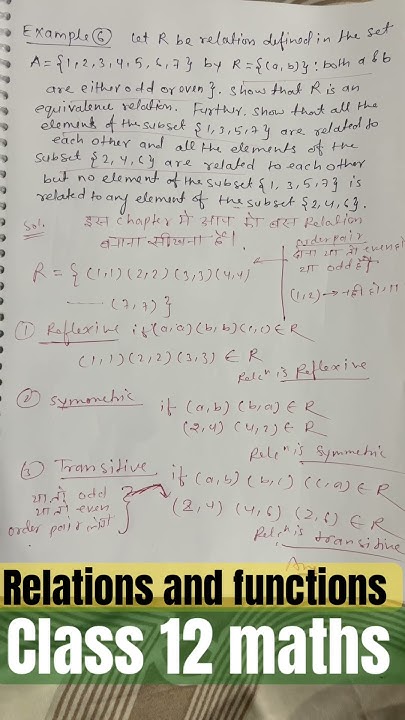 Example 6 Let R be relation defined in the set
A = {1,2,3,4,5,6,7} by R = {(a,b)} : both a & b
are either odd or even}. Show that R is an
equivalence relation. Further, show that all the
elements of the subset {1,3,5,7} are related to
each other and all the elements of the
subset {2,4,6} are related to each other
but no element of the subset {1,3,5,7} is
related to any element of the subset {2,4,6}.
Sol. इस chapter में आप को बस Relation
बनाना सीखना है।
order pair
या तो even हो
या odd हो
R = { (1,1) (2,2) (3,3) (4,4)
(1,2) → नहीं होगा
—— (7,7) }
① Reflexive if (a,a) (b,b) (c,c) ∈ R
(1,1) (2,2) (3,3) ∈ R
Relⁿ is Reflexive
② Symmetric if (a,b) (b,a) ∈ R
(2,4) (4,2) ∈ R
Relⁿ is Symmetric
③ Transitive if (a,b) (b,c) (c,a) ∈ R
या तो odd
या तो even
(2,4) (4,6) (2,6) ∈ R
order pair
Relⁿ is transitive
Ans
Relations and functions
Class 12 maths